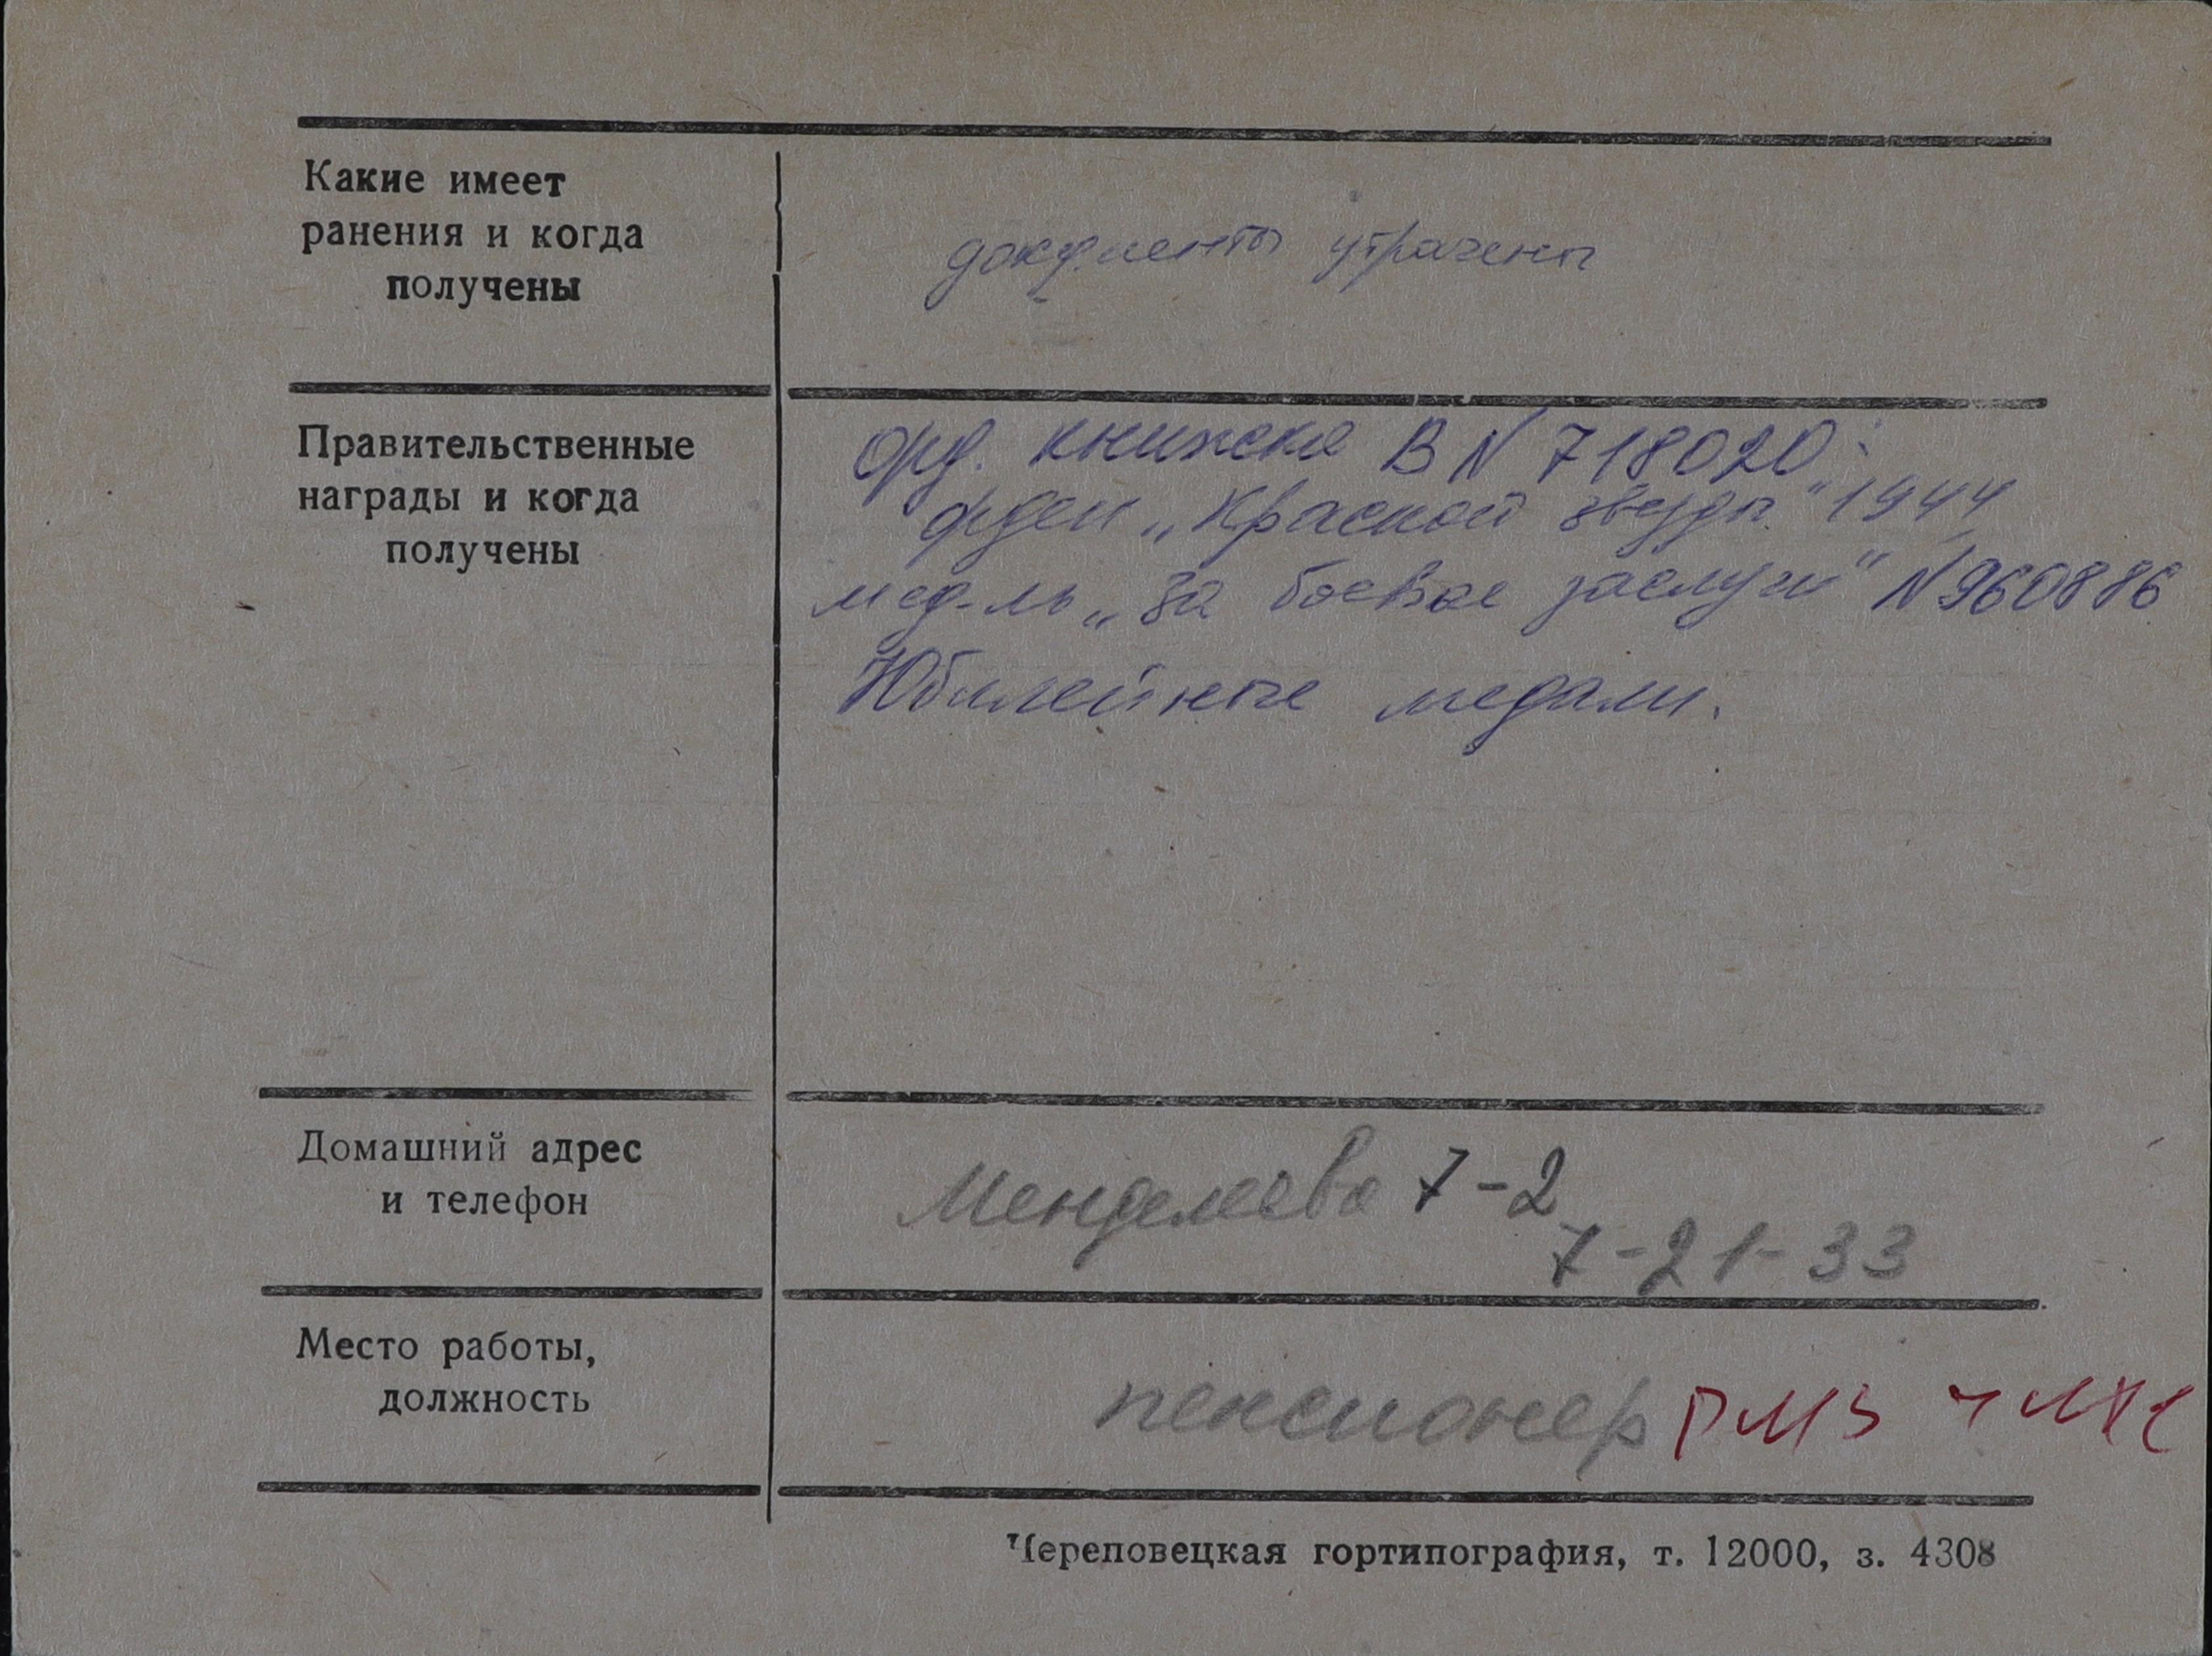 Какие имеет
ранения и когда
получены
документы утрачены
Правительственные
награды и когда
получены
орд. книжка В N 718020:
орден „Красной звезды" 1944
мед-ль „За боевые заслуги" N 960886
Юбилейные медали.
Домашний адрес
и телефон
Менделеева 7-2
7-21-33
Место работы,
должность
пенсионер РМЗ ЧМК
Череповецкая гортипография, т. 12000, з. 4308